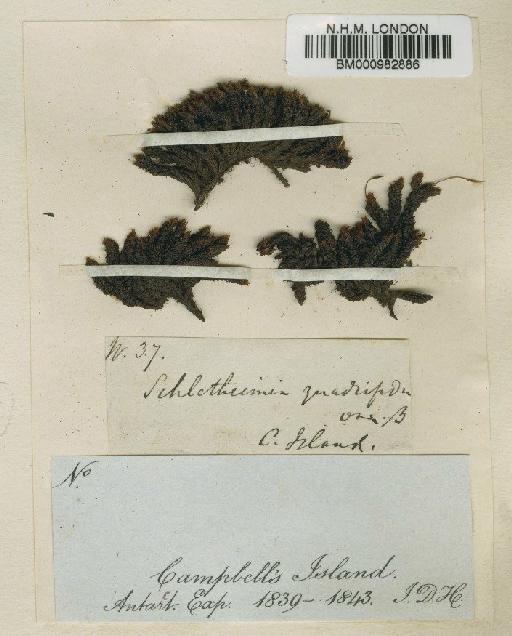 N.H.M. LONDON
BM000982886
W. 37.
Schlotheimia
var. β
C. Island.
No
Campbell's Island.
Antart. Exp. 1839-1843. J.D.H